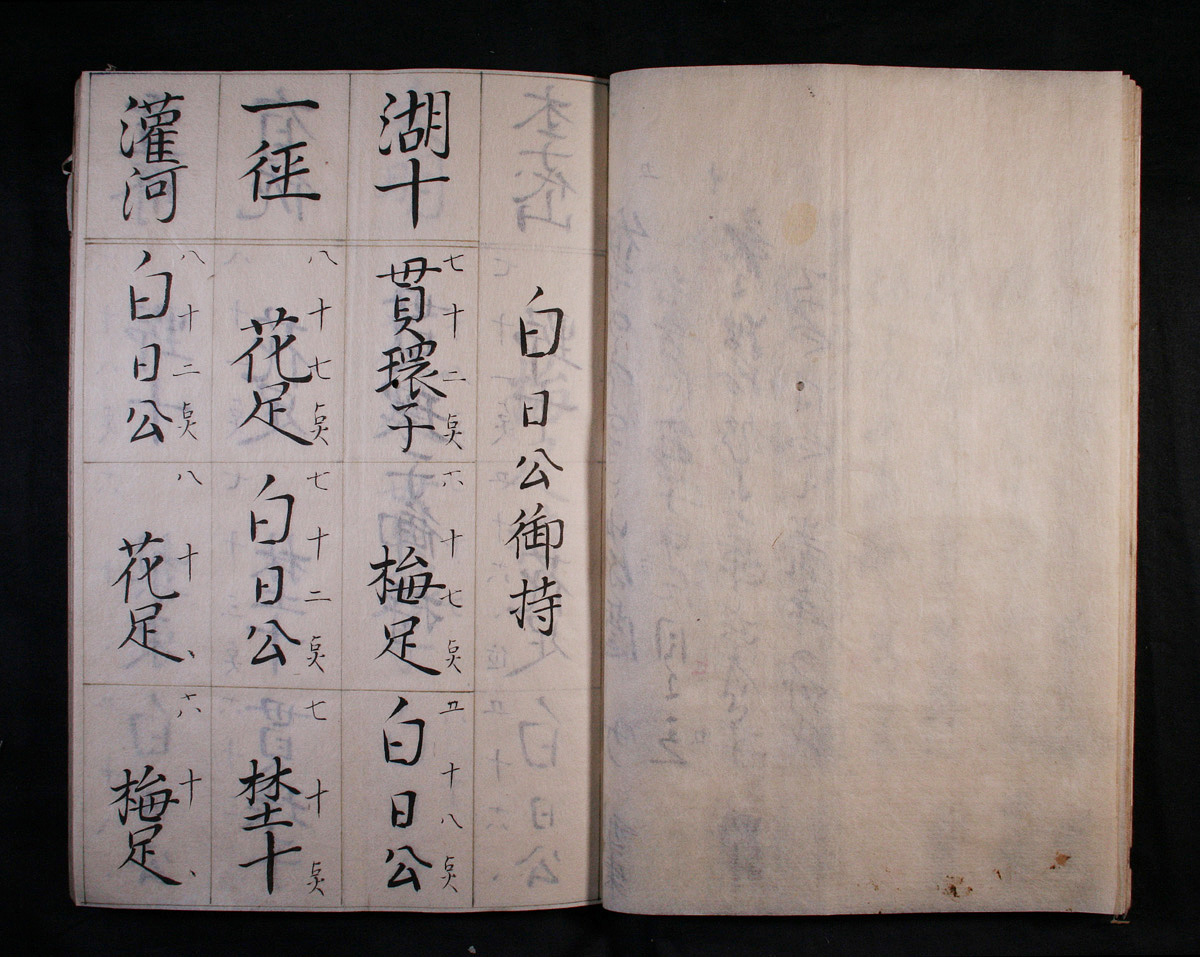 白日公御持
湖十
七十二点
貫環子
六十七点
梅足
五十八点
白日公
一徑
八十七点
花足
七十二点
白日公
七十点
埜十
灌河
八十二点
白日公
八十、
花足
六十、
梅足